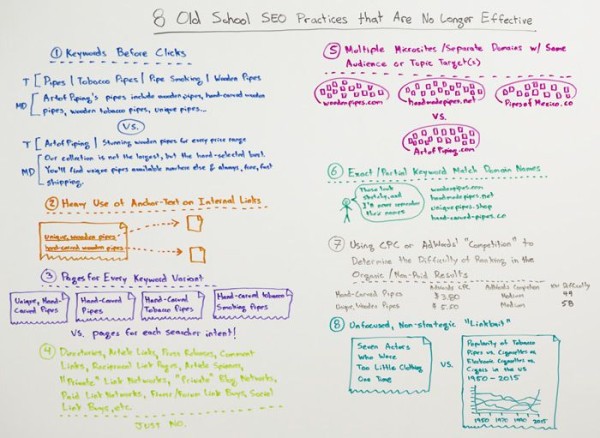 8 Old School SEO Practices that Are No Longer Effective
① Keywords Before Clicks
T [ Pipes | Tobacco Pipes | Pipe Smoking | Wooden Pipes
MD [ Art of Piping's pipes include wooden pipes, hand-carved wooden
pipes, wooden tobacco pipes, unique pipes...
VS.
T [ Art of Piping | Stunning wooden pipes for every price range
MD [ Our collection is not the largest, but the hand-selected best.
You'll find unique pipes available nowhere else & always, free, fast
shipping.
② Heavy Use of Anchor-Text on Internal Links
unique, wooden pipes
hand-carved wooden pipes
③ Pages for Every Keyword Variant
Unique, Hand-
Carved Pipes
Hand-Carved
Pipes
Hand-Carved
Tobacco Pipes
Hand-Carved Tobacco
Smoking Pipes
VS. pages for each searcher intent!
④ Directories, Article Links, Press Releases, Comment
Links, Reciprocal Link Pages, Article Spinners,
"Private" Link Networks, "Private" Blog Networks,
Paid Link Networks, Fiverr/Forum Link Buys, Social
Link Buys, etc.
JUST NO.
⑤ Multiple Microsites/Separate Domains w/ Same
Audience or Topic Target(s)
woodenpipes.com
handmadepipes.net
PipesofMexico.co
VS.
ArtofPiping.com
⑥ Exact/Partial Keyword Match Domain Names
These look
sketchy, and
I'll never remember
their names
woodenpipes.com
handmadepipes.net
uniquepipes.shop
hand-carved-pipes.co
⑦ Using CPC or AdWords' "Competition" to
Determine the Difficulty of Ranking in the
Organic/Non-Paid Results
AdWords CPC AdWords Competition KW Difficulty
Hand-Carved Pipes $3.80 Medium 49
Unique, Wooden Pipes $5.50 Medium 58
⑧ Unfocused, Non-strategic "Linkbait"
Seven Actors
Who Wore
Too Little Clothing
One Time
VS.
Popularity of Tobacco
Pipes vs. Cigarettes vs.
Electronic Cigarettes vs.
Cigars in the US
1950-2015
1950 1970 1990 2015